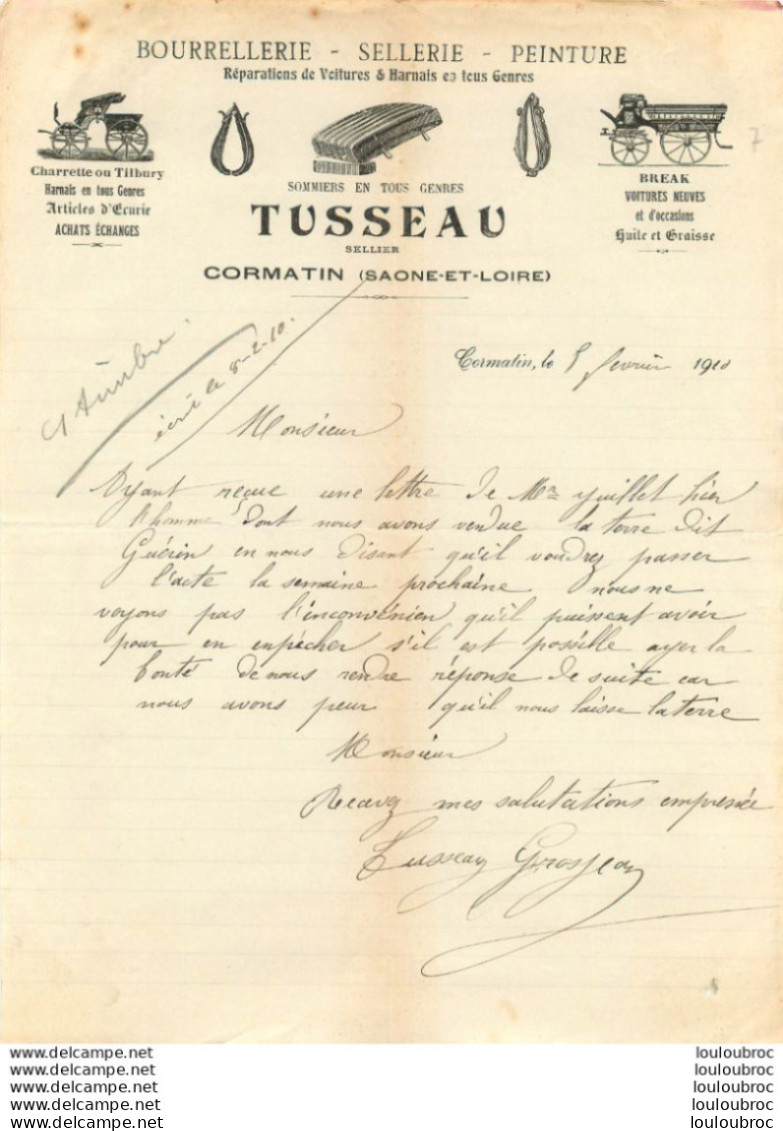 BOURRELLERIE - SELLERIE - PEINTURE
Réparations de Voitures & Harnais en tous Genres
Charrette ou Tilbury
Harnais en tous Genres
Articles d'Ecurie
ACHATS ÉCHANGES
SOMMIERS EN TOUS GENRES
TUSSEAU
SELLIER
CORMATIN (SAONE-ET-LOIRE)
BREAK
VOITURES NEUVES
et d'occasions
Huile et Graisse
7
écrit le 8-2-10.
Cormatin, le 5 fevrier 1910
Monsieur
Ayant reçue une lettre de Mr Juillet hier
l'homme dont nous avons vendue la terre dit
Guérin en nous disant qu'il voudrez passer
l'acte la semaine prochaine nous ne
voyons pas l'inconvénien qu'il puissent avoir
pour en enpécher s'il est possille ayer la
bonté de nous rendre réponse de suite car
nous avons peur qu'il nous laisse la terre
Monsieur
Recevez mes salutations empressée
Tusseau Grosjean
www.delcampe.net louloubroc
www.delcampe.net louloubroc
www.delcampe.net louloubroc
www.delcampe.net louloubroc
www.delcampe.net louloubroc